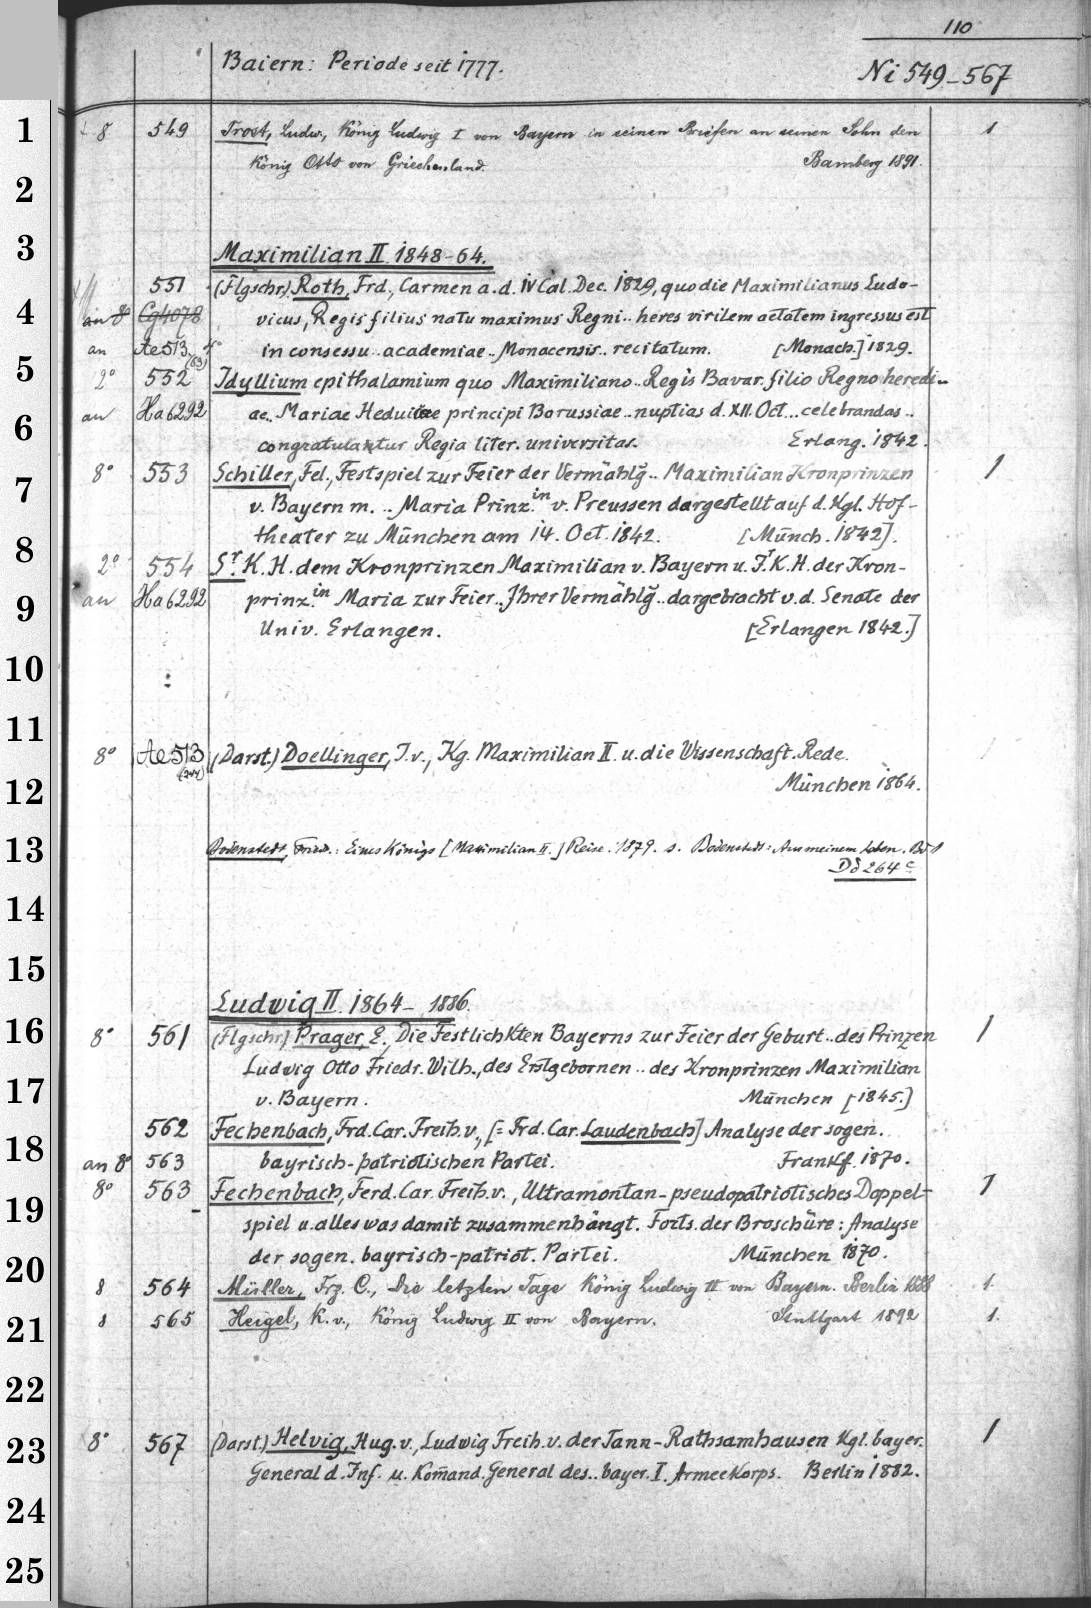 110
Baiern: Periode seit 1777.
Ni 549-567
1
+ 8 549 Trost, Ludw., König Ludwig I von Bayern in seinen Briefen an seinen Sohn den 1
König Otto von Griechenland. Bamberg 1891.
2
3
Maximilian II. 1848-64.
551 (Flgschr.) Roth, Frd., Carmen a. d. IV Cal. Dec. 1829, quo die Maximilianus Ludo-
4
an 8° Cg4078 vicus, Regis filius natu maximus Regni.. heres virilem aetatem ingressus est
an Ae513 (63) 4° in consessu.. academiae.. Monacensis.. recitatum. [Monach.] 1829.
5
2° 552 Idyllium epithalamium quo Maximiliano.. Regis Bavar. filio Regno heredi..
an Ha6292 ae.. Mariae Heduicae principi Borussiae.. nuptias d. XII. Oct... celebrandas..
6
congratulantur Regia liter. universitas. Erlang. 1842.
8° 553 Schiller, Fel., Festspiel zur Feier der Vermählg̃.. Maximilian Kronprinzen 1
7
v. Bayern m. .. Maria Prinz.in v. Preussen dargestellt auf d. Kgl. Hof-
theater zu München am 14. Oct. 1842. [Münch. 1842].
8
2° 554 Sr. K. H. dem Kronprinzen Maximilian v. Bayern u. Ir. K. H. der Kron-
an Ha6292 prinz.in Maria zur Feier.. Ihrer Vermählg̃.. dargebracht v. d. Senate der
9
Univ. Erlangen. [Erlangen 1842.]
10
11
8° Ae513 (244) (Darst.) Doellinger, J. v., Kg. Maximilian II. u. die Wissenschaft. Rede.
12
München 1864.
13
Bodenstedt, Fried.: Eines Königs [Maximilian II.] Reise. 1879. s. Bodenstedt: Aus meinem Leben. Bd 1
Dd 264 c
14
15
Ludwig II. 1864- 1886.
16
8° 561 (Flgschr.) Prager, E., Die Festlichkten Bayerns zur Feier der Geburt.. des Prinzen 1
Ludwig Otto Friedr. Wilh., des Erstgebornen.. des Kronprinzen Maximilian
17
v. Bayern. München [1845.]
562 Fechenbach, Frd. Car. Freih. v., [= Frd. Car. Laudenbach] Analyse der sogen.
18
an 8° 563 bayrisch-patriotischen Partei. Frankf. 1870.
8° 563 Fechenbach, Ferd. Car. Freih. v., Ultramontan-pseudopatriotisches Doppel- 1
19
spiel u. alles was damit zusammenhängt. Forts. der Broschüre: Analyse
der sogen. bayrisch-patriot. Partei. München 1870.
20
8 564 Müller, Frz. C., Die letzten Tage König Ludwig II von Bayern. Berlin 1888 1.
8 565 Heigel, K. v., König Ludwig II von Bayern. Stuttgart 1892 1.
21
22
23
8° 567 (Darst.) Helvig, Hug. v., Ludwig Freih. v. der Tann-Rathsamhausen Kgl. bayer. 1
General d. Inf. u. Kom̃and. General des.. bayer. I. Armeekorps. Berlin 1882.
24
25